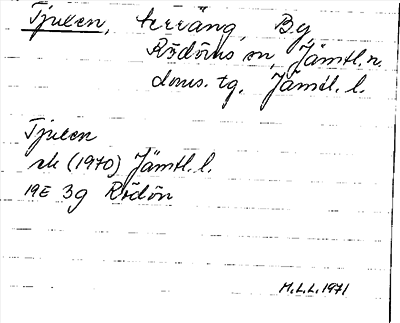 Tjulen, terräng, By
Rödöns sn, Jämtl. n.
doms. tg, Jämtl. l.
Tjulen
rek (1970) Jämtl. l.
19E 3g Rödön
M.L.L. 1971